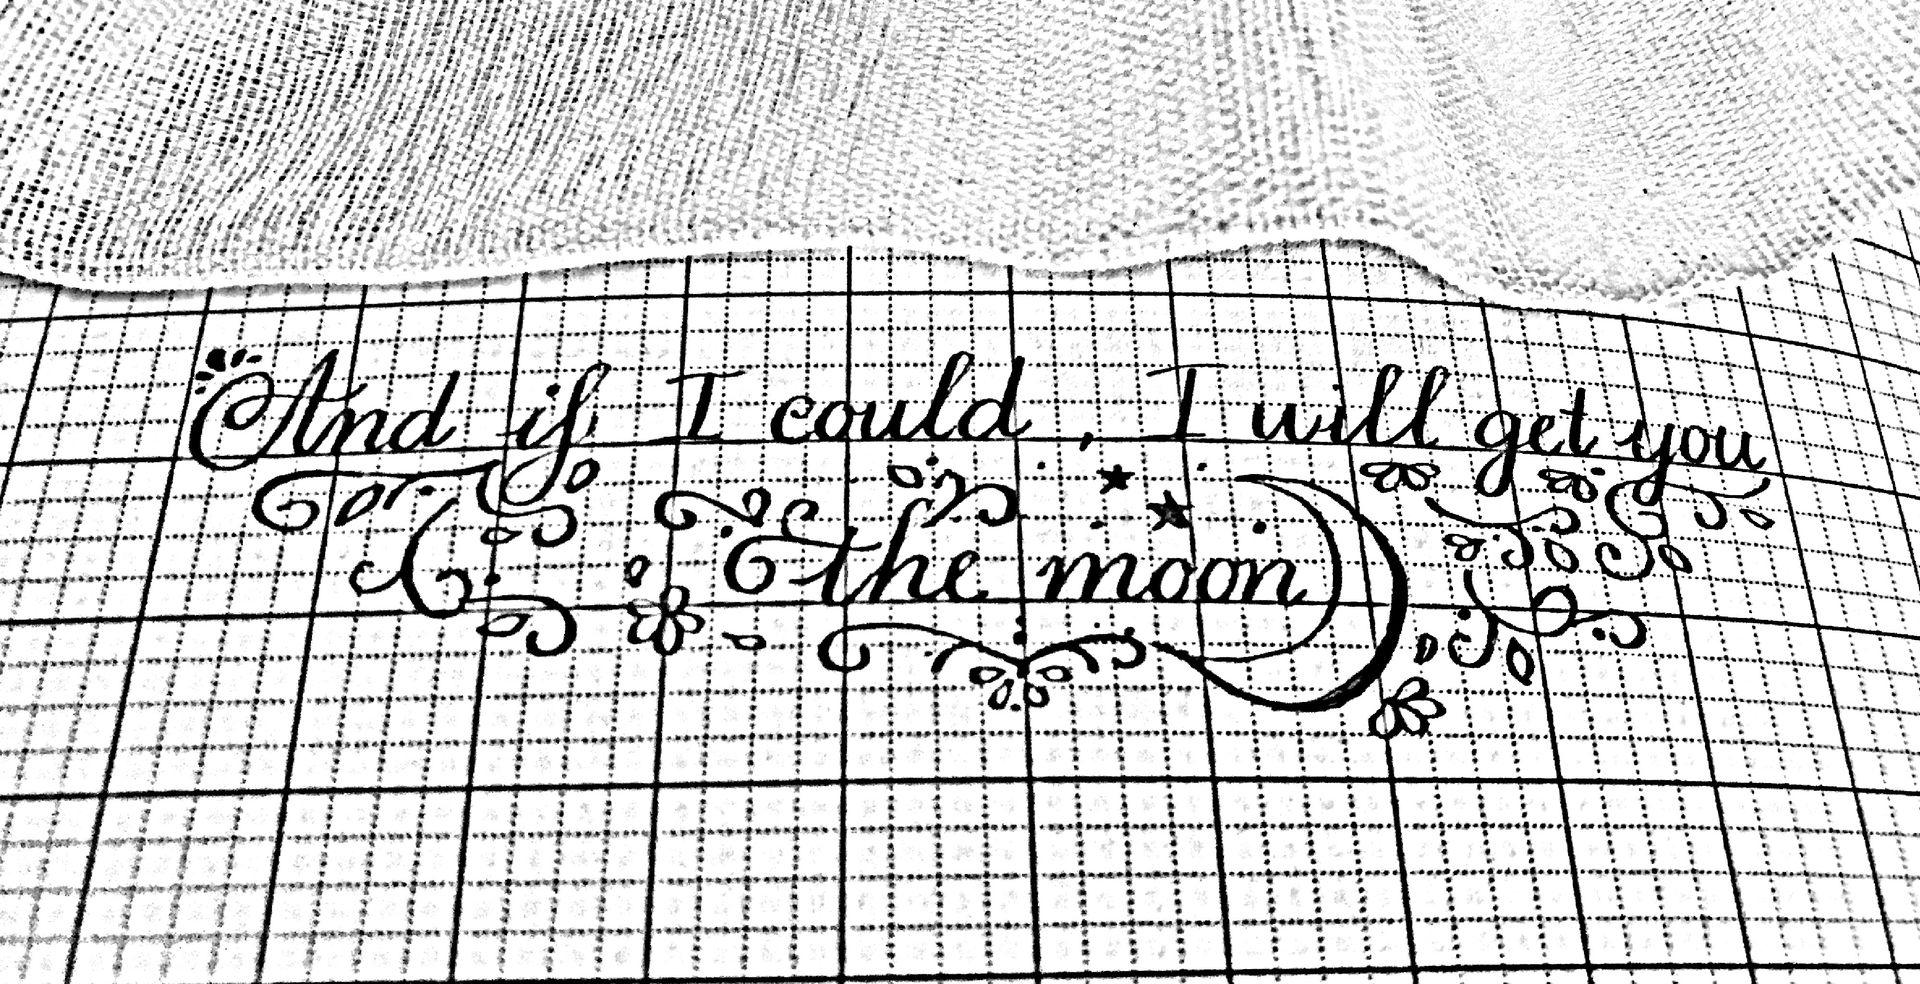 And if I could, I will get you
the moon